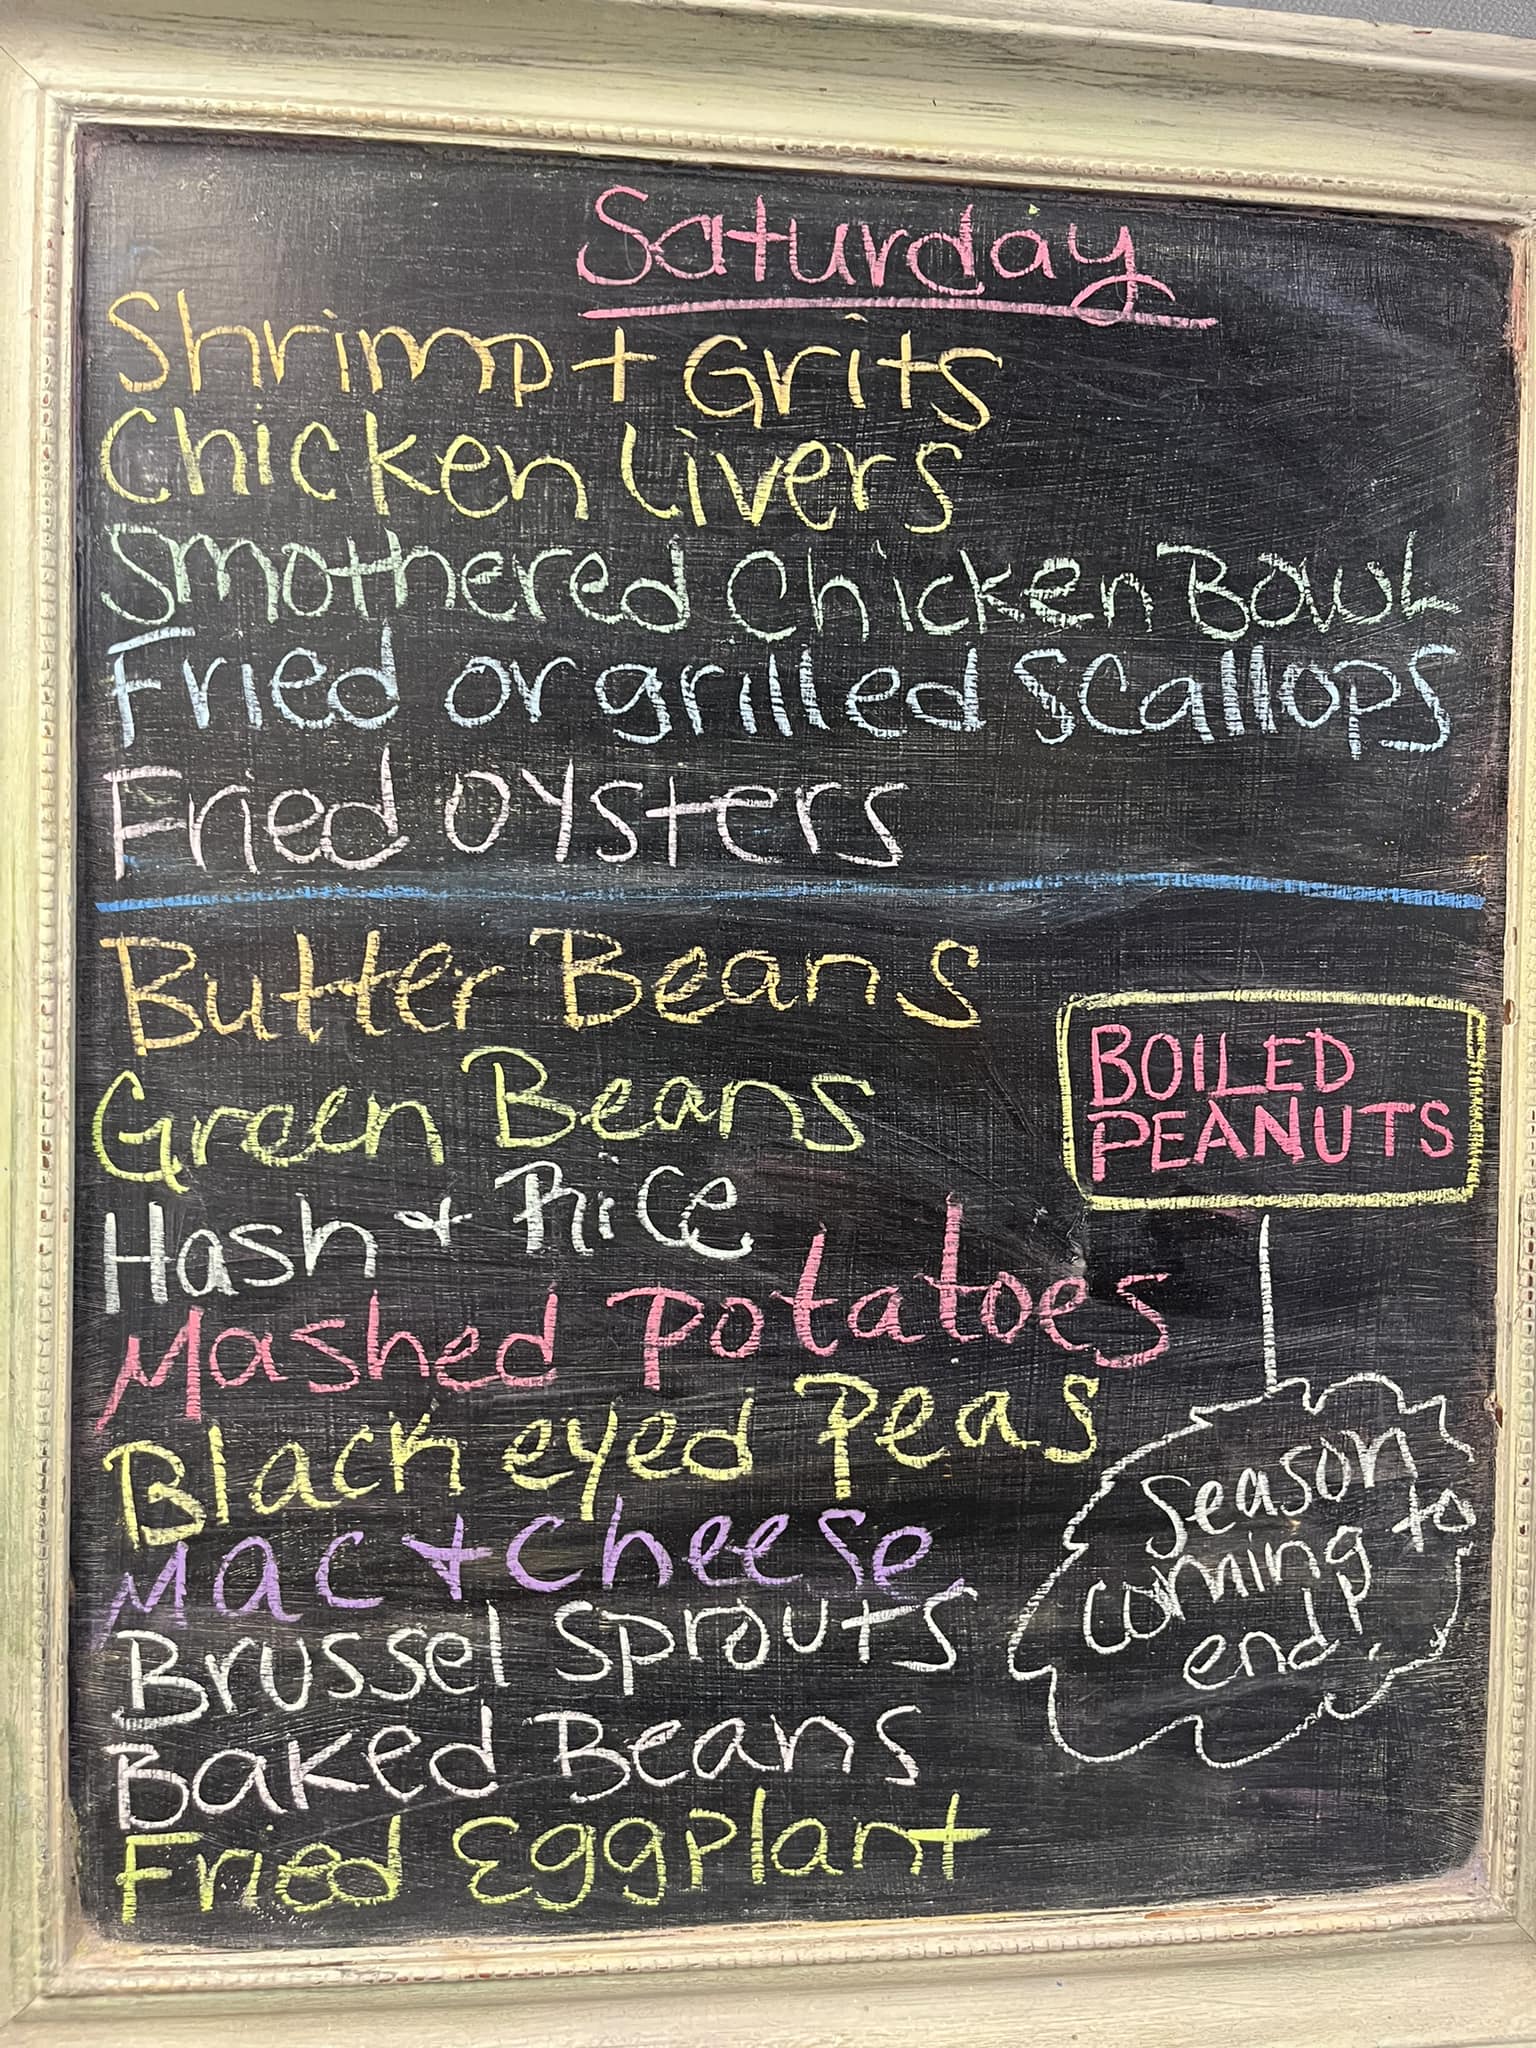 Saturday
Shrimp + Grits
Chicken Livers
Smothered Chicken Bowl
Fried or grilled scallops
Fried oysters
Butter Beans
Green Beans
Hash + Rice
Mashed potatoes
Black eyed Peas
Mac + cheese
Brussel Sprouts
Baked Beans
Fried Eggplant
BOILED
PEANUTS
Season
coming to
end!